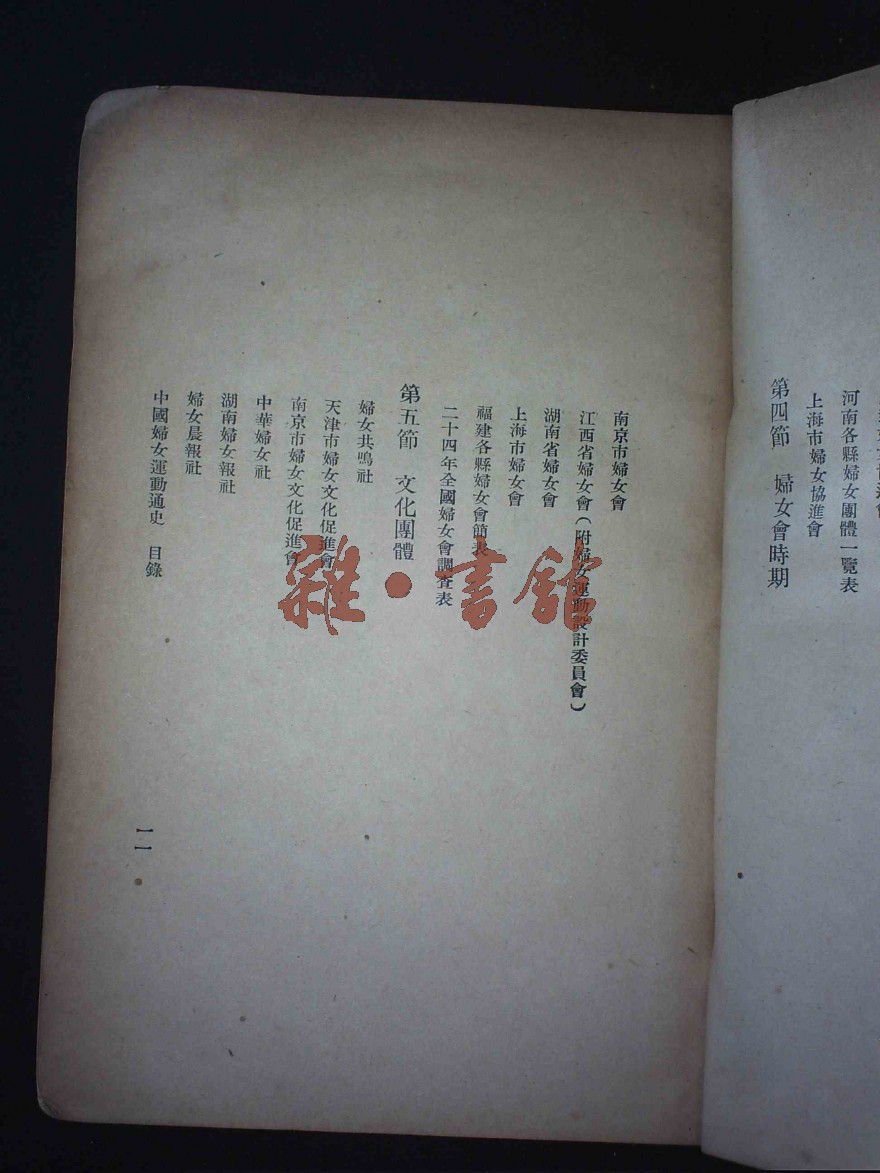 上海市婦女協進會
河南各縣婦女團體一覽表
第四節 婦女會時期
南京市婦女會
江西省婦女會(附婦女運動設計委員會)
湖南省婦女會
上海市婦女會
福建各縣婦女會簡表
二十四年全國婦女會調查表
第五節 文化團體
婦女共鳴社
天津市婦女文化促進會
南京市婦女文化促進會
中華婦女社
湖南婦女報社
婦女晨報社
中國婦女運動通史 目錄
一一
雜·書館